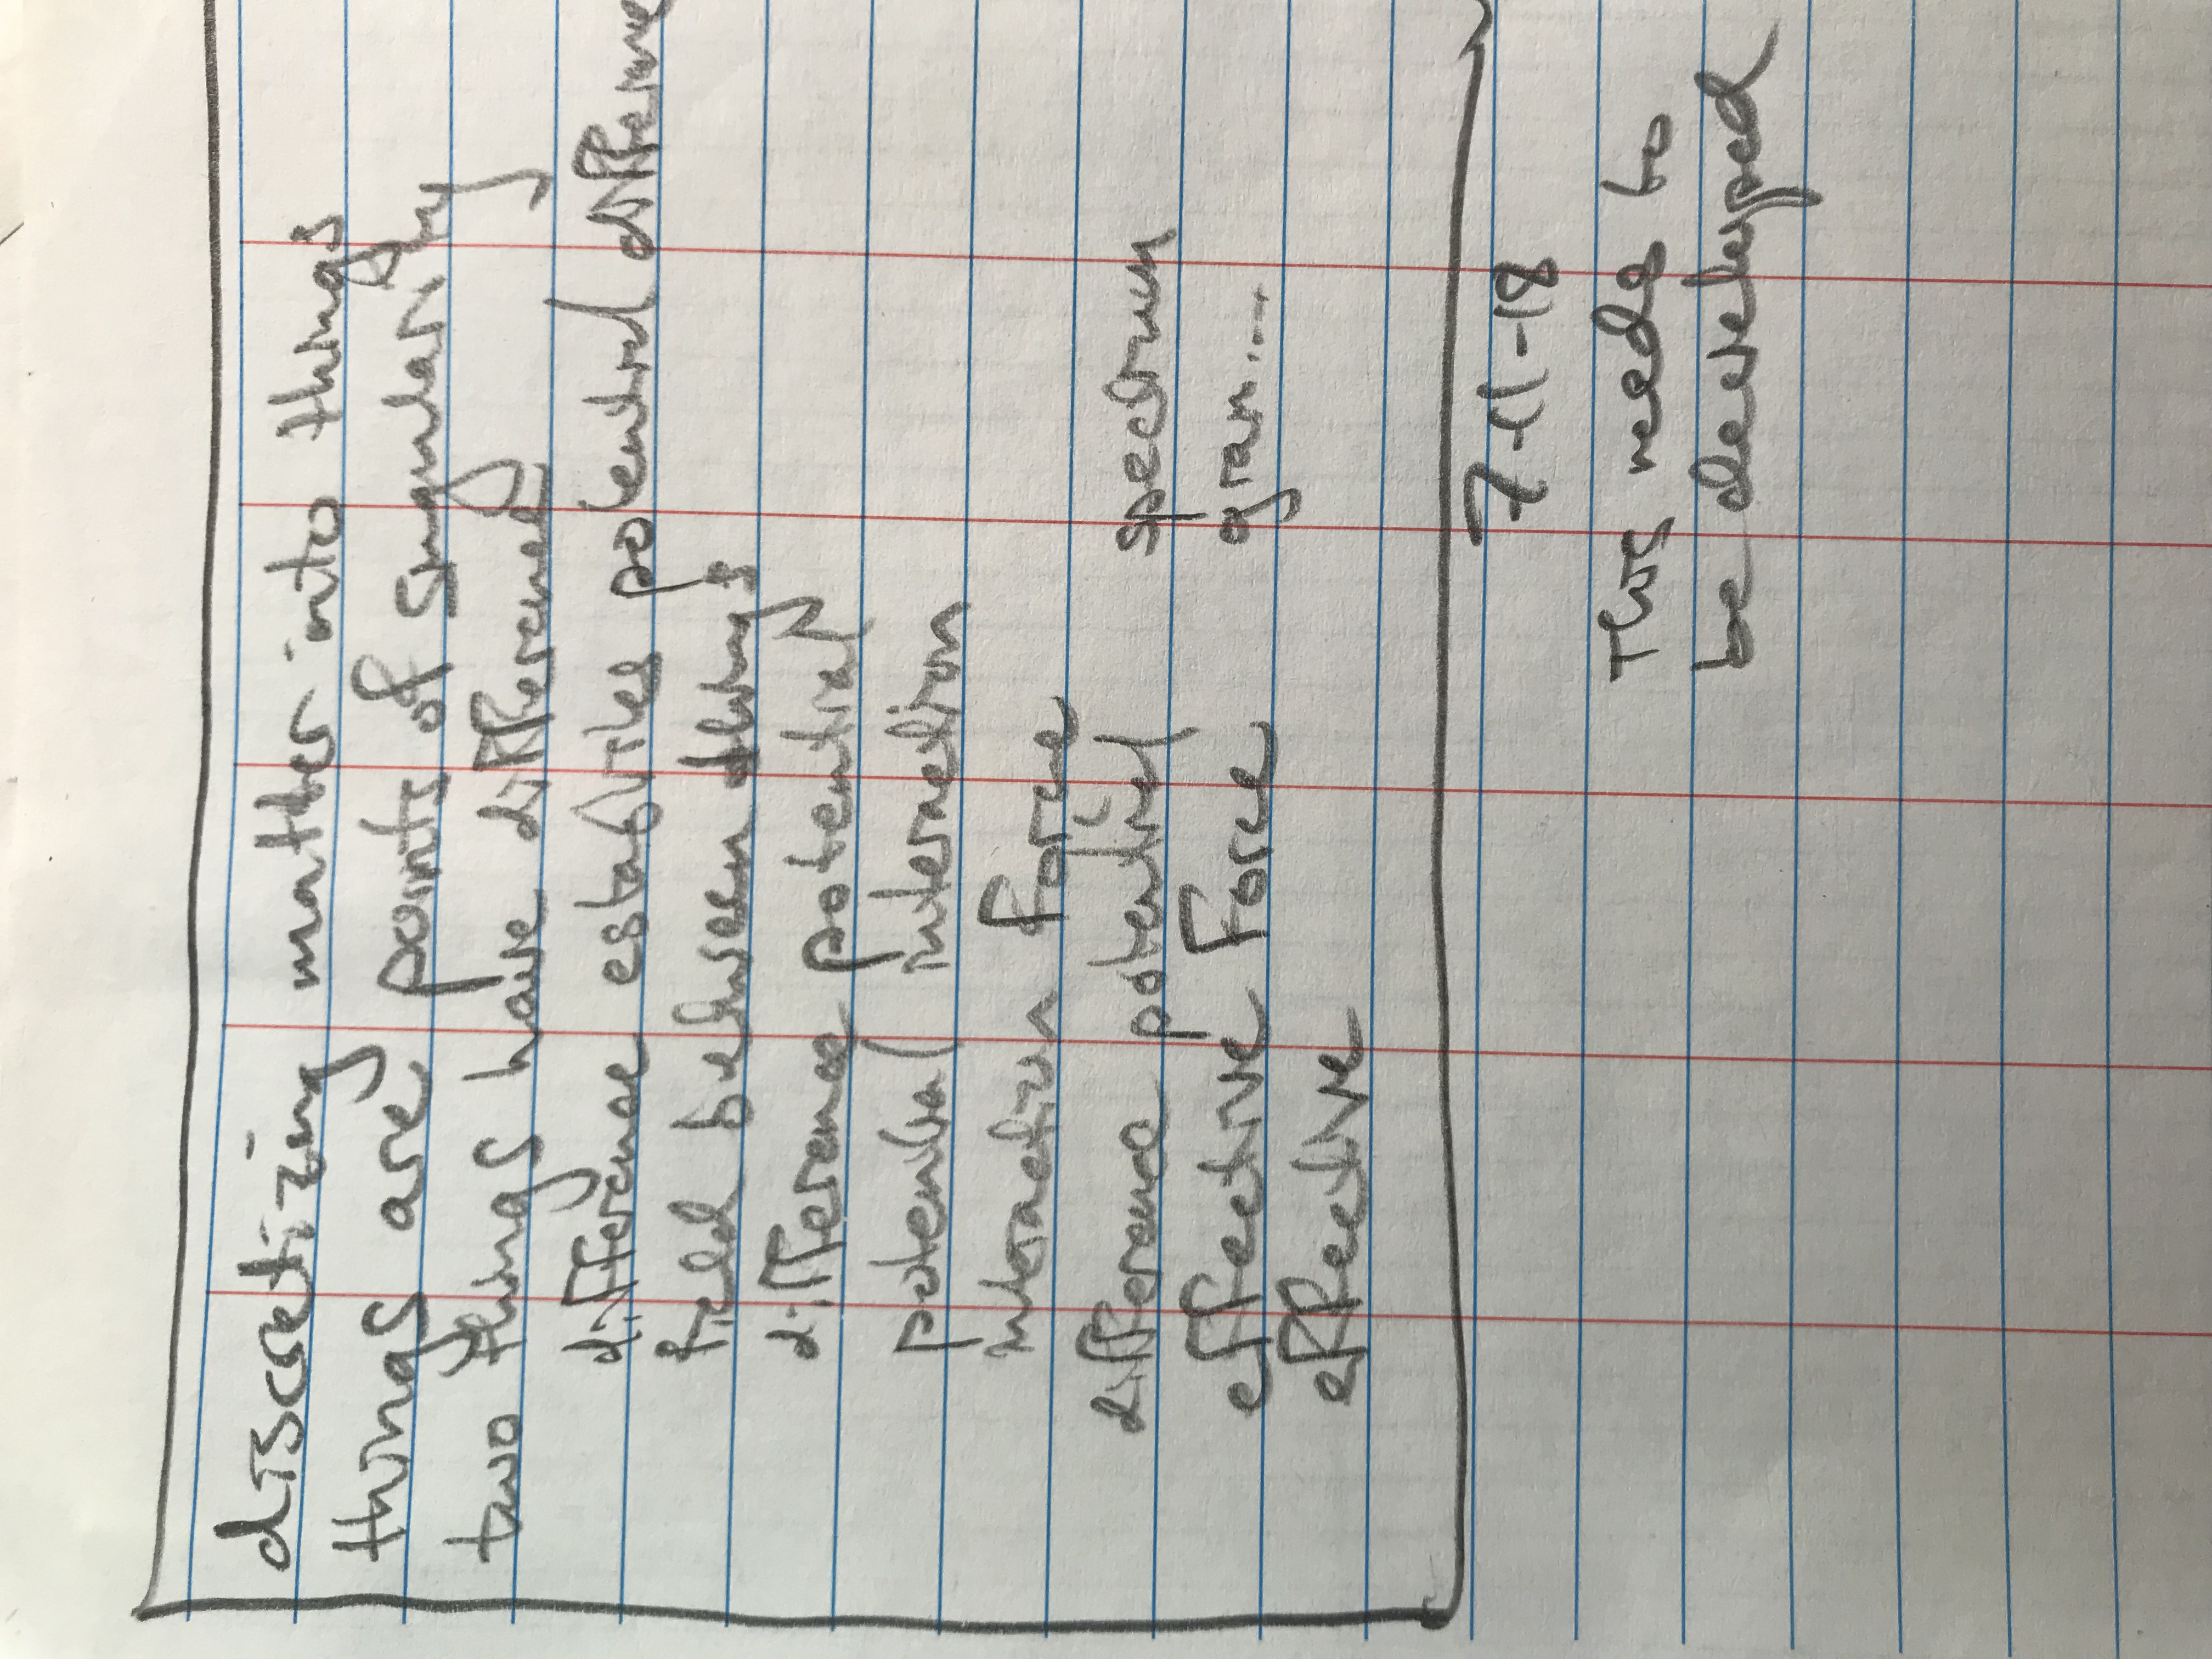 discretizing matter into things
things are points of singularity
two things have difference
difference establishes potential difference
field between things
difference potential
potential interaction
interaction Force
difference potential spectrum
effective Force gran....
effective
7-11-18
This needs to
be developed